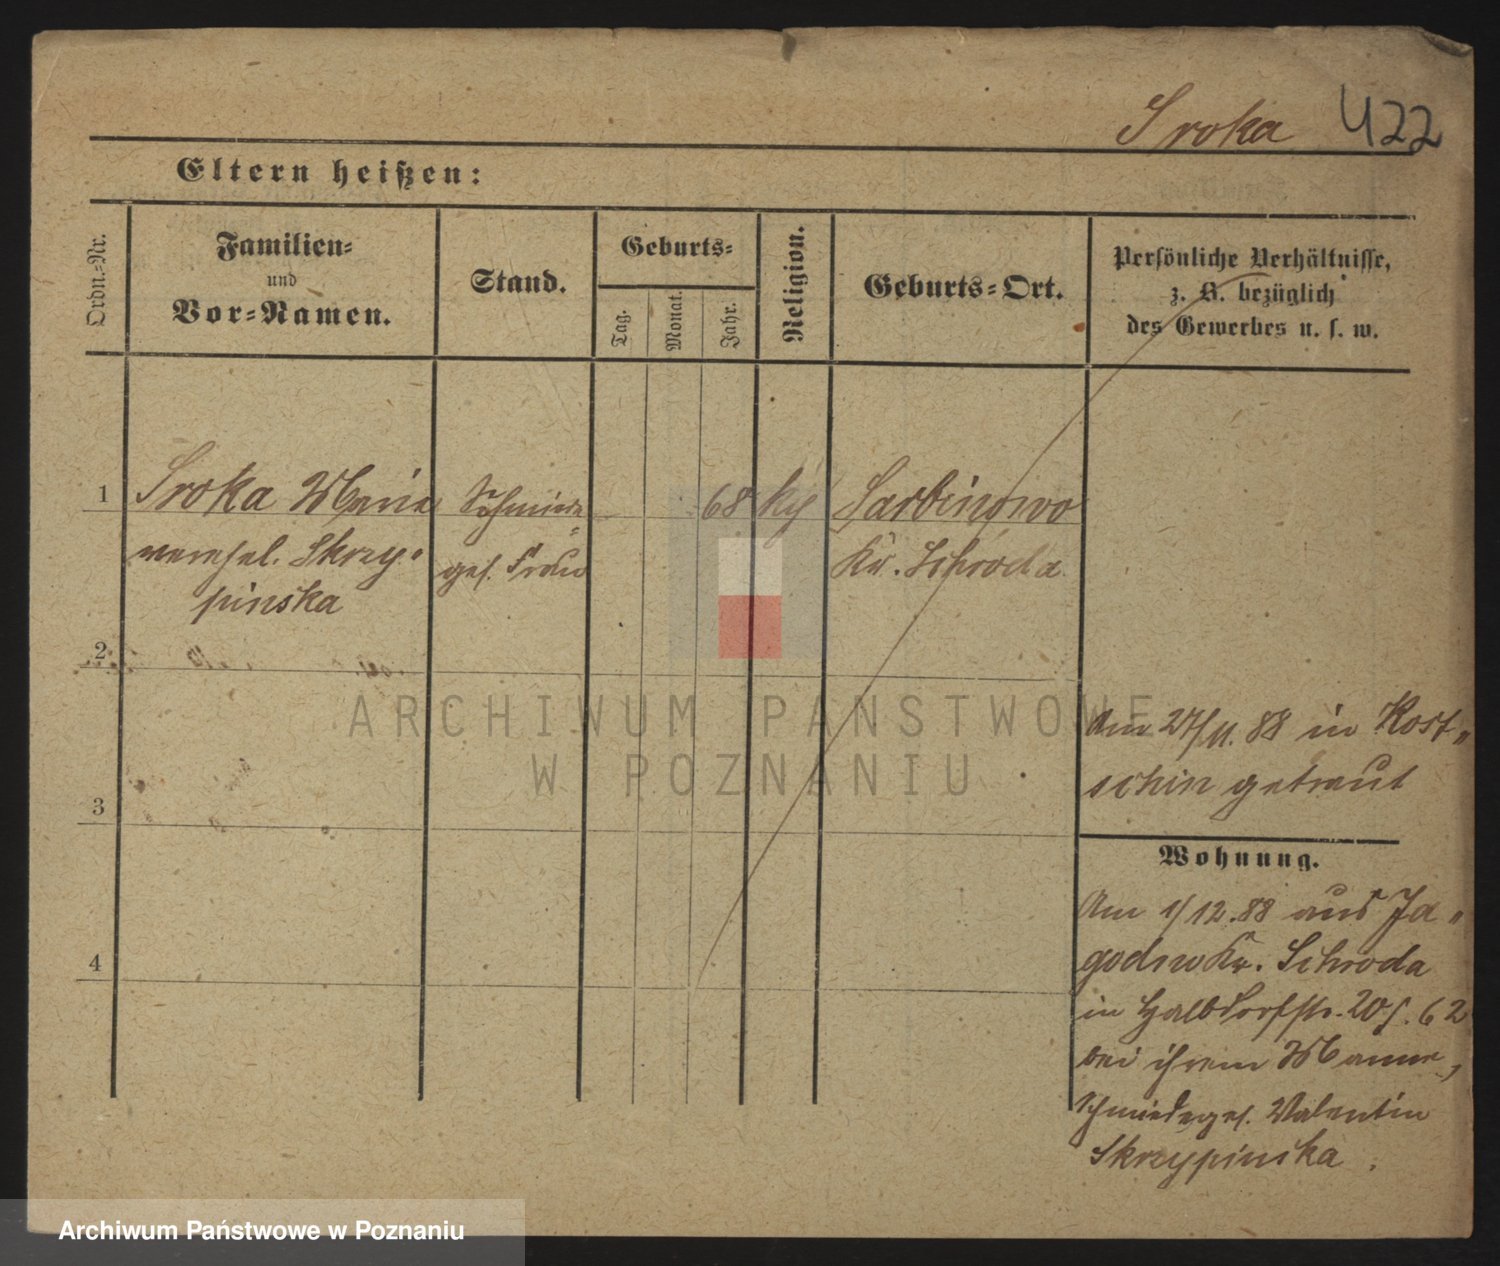 Sroka 422
Eltern heißen:
Ordn.-Nr.
Familien-
und
Vor-Namen.
Stand.
Geburts-
Tag.
Monat.
Jahr.
Religion.
Geburts-Ort.
Persönliche Verhältnisse,
z. B. bezüglich
des Gewerbes u. s. w.
1 Sroka Marie Schmiede- 68 Sarbinowo
verehel. Skrzy- ges. Frau Kr. Schroda
pinska
2
3
4
Am 27/11. 88 in Kost-
schin getraut
Wohnung.
Am 1/12.88 aus Ja-
godno Kr. Schroda
in Halbdorfstr. 20 f. 62
bei ihrem Manne,
Schmiedeges. Valentin
Skrzypinska.
ARCHIWUM PAŃSTWOWE
W POZNANIU
Archiwum Państwowe w Poznaniu